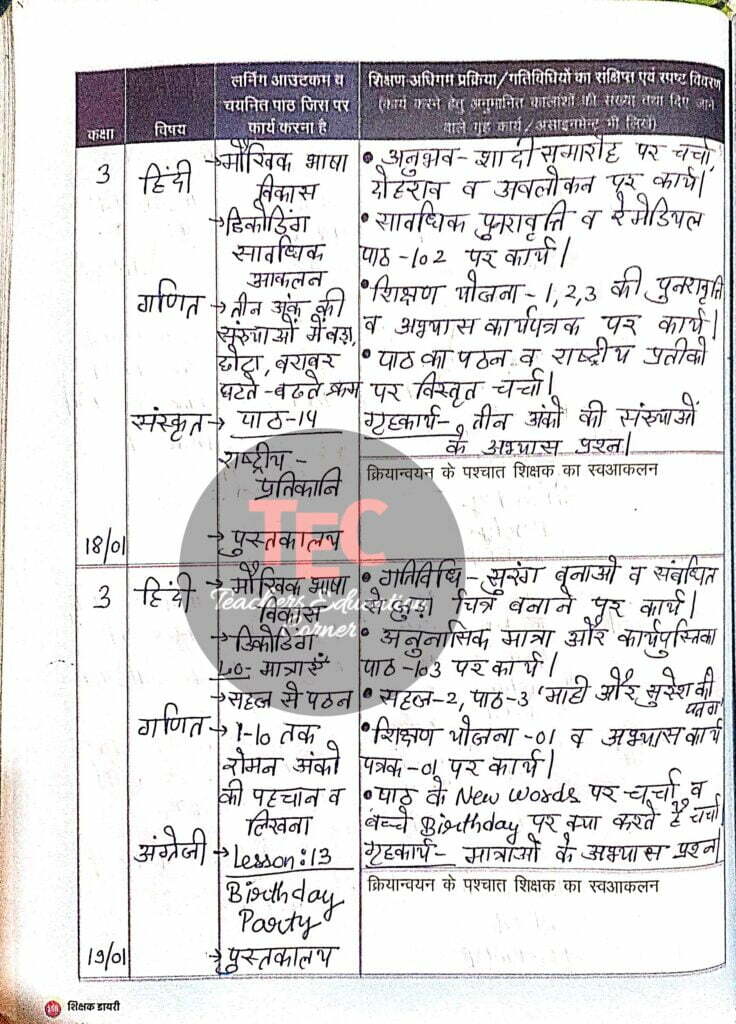 कक्षा
विषय
लर्निंग आउटकम व
चयनित पाठ जिस पर
कार्य करना है
शिक्षण अधिगम प्रक्रिया/गतिविधियों का संक्षिप्त एवं स्पष्ट विवरण
(कार्य करने हेतु अनुमानित कालांशों की संख्या तथा दिए जाने
वाले गृह कार्य/असाइनमेन्ट भी लिखें)
3
हिंदी
→मौखिक भाषा
विकास
→डिकोडिंग
सावधिक
आकलन
गणित
→तीन अंक की
संख्याओं में बड़ा,
छोटा, बराबर
घटते-बढते क्रम
संस्कृत
→ पाठ-14
राष्ट्रीय-
प्रतिकानि
→ पुस्तकालय
18/01
• अनुभव- शादी समारोह पर चर्चा,
दोहराव व अवलोकन पर कार्य।
• सावधिक पुनरावृत्ति व रेमेडियल
पाठ-102 पर कार्य।
•शिक्षण योजना-1,2,3 की पुनरावृति
व अभ्यास कार्यपत्रक पर कार्य।
• पाठ का पठन व राष्ट्रीय प्रतीको
पर विस्तृत चर्चा।
गृहकार्य- तीन अंको की संख्याओं
के अभ्यास प्रश्न।
क्रियान्वयन के पश्चात शिक्षक का स्वआकलन
TEC
Teachers Education
Corner
3
हिंदी
→ मौखिक भाषा
विकास
→ डिकोडिंग
LO- मात्राएँ
→सहज से पठन
गणित
→ 1-10 तक
रोमन अंको
की पहचान व
लिखना
अंग्रेजी
→ Lesson:13
Birthday
Party
→पुस्तकालय
19/01
• गतिविधि- सुरंग बनाओ व संबधित
से जुड़ा चित्र बनाने पर कार्य।
• अनुनासिक मात्रा और कार्यपुस्तिका
पाठ-103 पर कार्य।
• सहज-2, पाठ-3 'माही और सुरेश की
पतंग'
•शिक्षण योजना-01 व अभ्यास कार्य
पत्रक-01 पर कार्य।
• पाठ के New words पर चर्चा व
बच्चे Birthday पर क्या करते है चर्चा
गृहकार्य- मात्राओं के अभ्यास प्रश्न।
क्रियान्वयन के पश्चात शिक्षक का स्वआकलन
शिक्षक डायरी